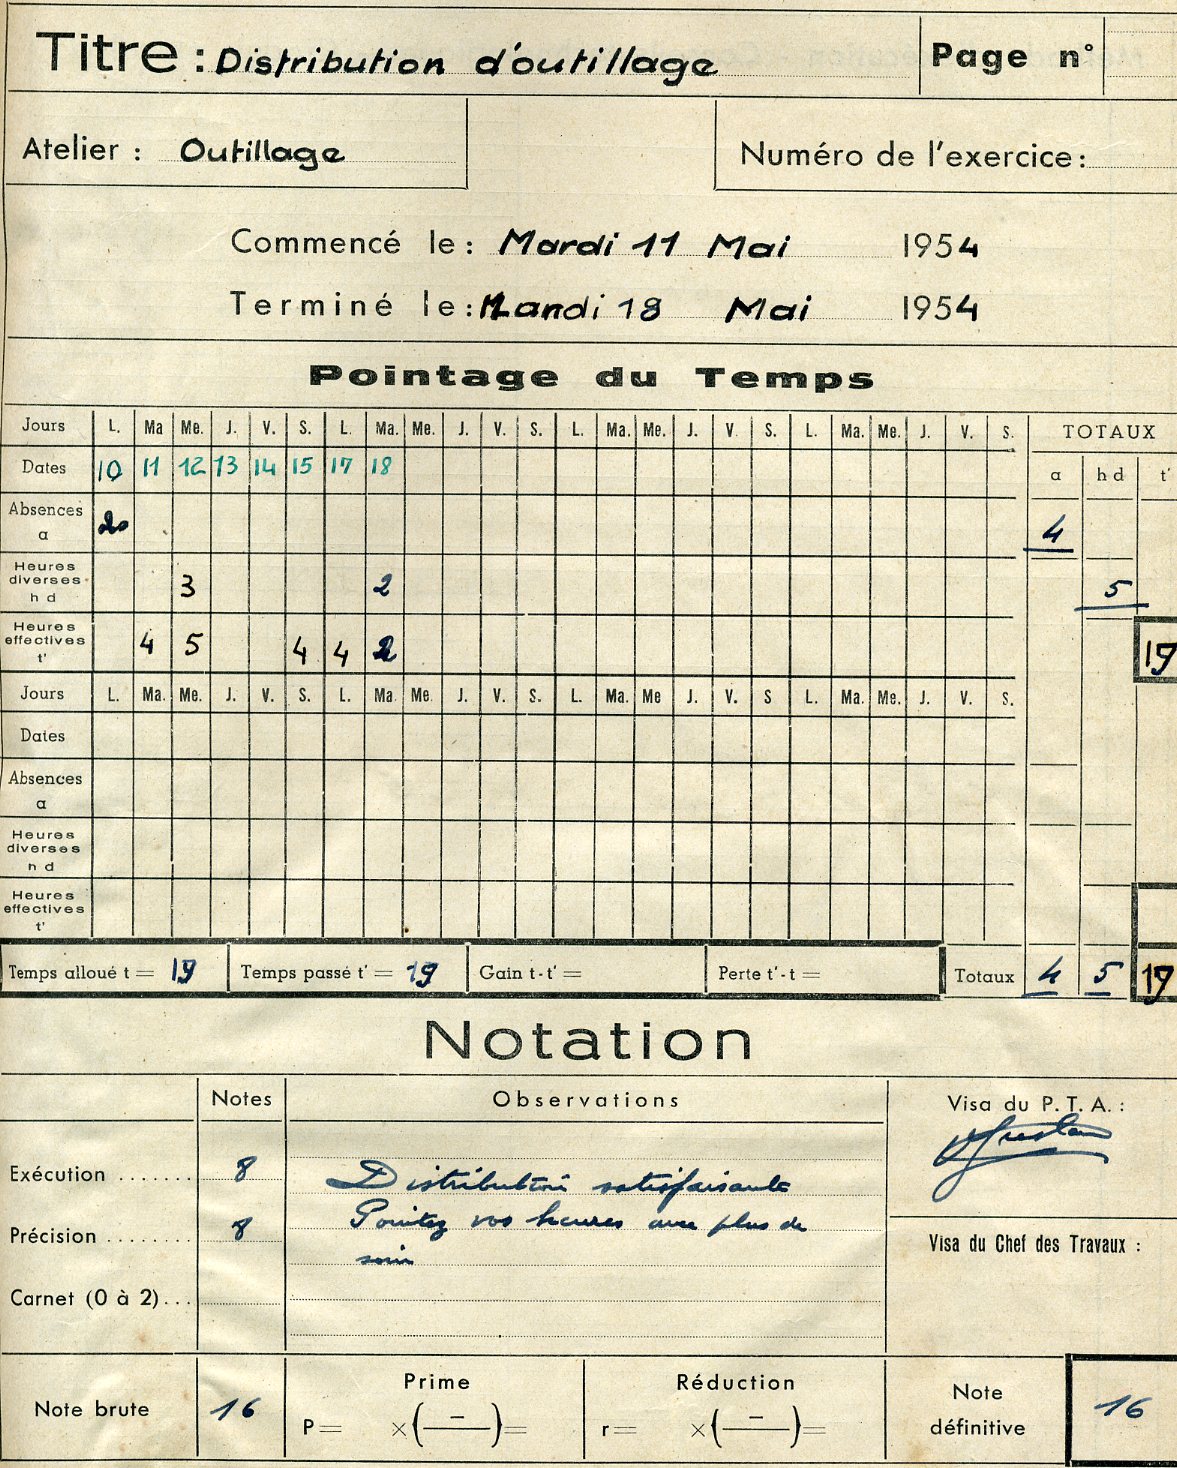 Titre : Distribution d'outillage Page n°
Atelier : Outillage Numéro de l'exercice :
Commencé le : Mardi 11 Mai 1954
Terminé le : Mardi 18 Mai 1954
Pointage du Temps
Jours L. Ma Me. J. V. S. L. Ma. Me. J. V. S. L. Ma. Me. J. V. S. L. Ma. Me. J. V. S. TOTAUX
Dates 10 11 12 13 14 15 17 18 a h d t'
Absences
a 4
Heures
diverses
h d 3 2 5
Heures
effectives
t' 4 5 4 4 2 19
Jours L. Ma. Me. J. V. S. L. Ma. Me. J. V. S. L. Ma. Me J. V. S L. Ma. Me. J. V. S.
Dates
Absences
a
Heures
diverses
h d
Heures
effectives
t'
Temps alloué t = 19 Temps passé t' = 19 Gain t-t' = Perte t'-t = Totaux 4 5 19
Notation
Notes Observations Visa du P. T. A. :
Exécution ....... 8 Distribution satisfaisante
Précision ........ 8 Pointez vos heures avec plus de
soin
Visa du Chef des Travaux :
Carnet (0 à 2)...
Note brute 16 Prime Réduction Note
définitive 16
P = ×( — ) = r = ×( — ) =